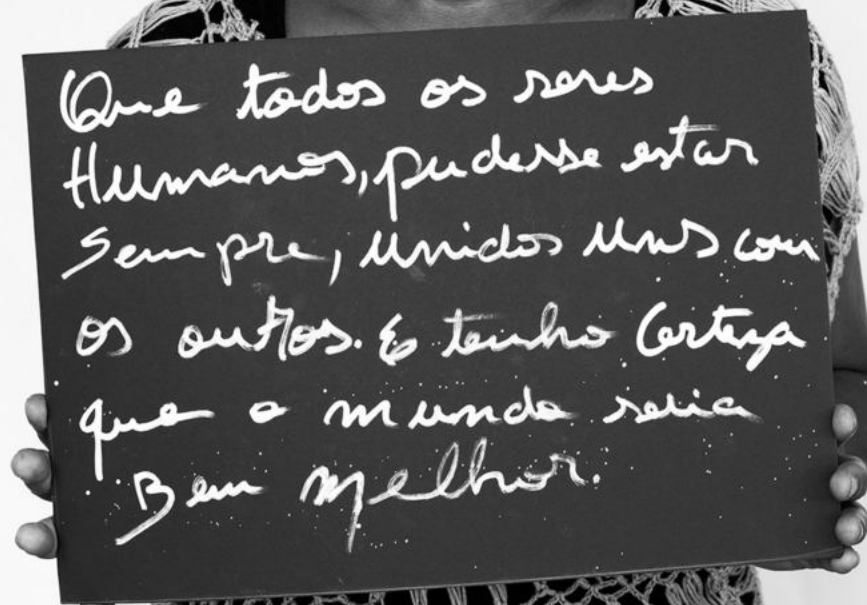 Que todos os seres
Humanos, pudesse estar
Sempre, unidos uns com
os outros. E tenho Certeza
que o mundo seria
Bem melhor.